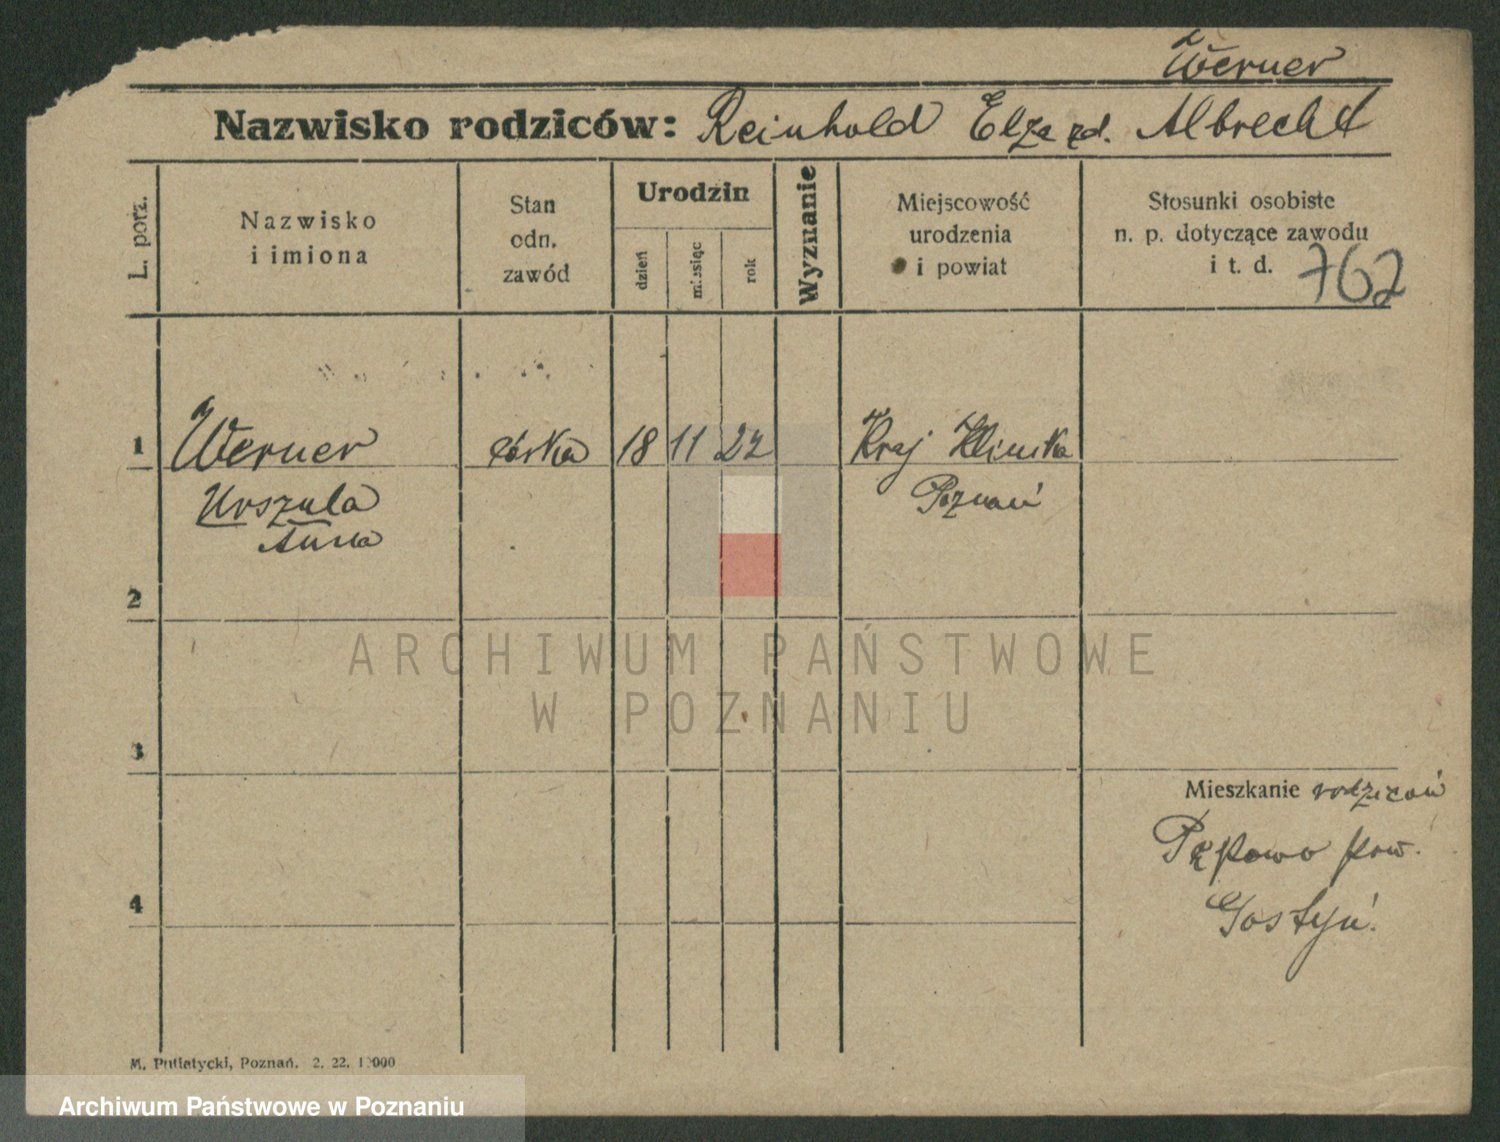 Werner
Nazwisko rodziców: Reinhold Elza zd. Albrecht
L. porz.
Nazwisko
i imiona
Stan
odn.
zawód
Urodzin
dzień
miesiąc
rok
Wyznanie
Miejscowość
urodzenia
i powiat
Stosunki osobiste
n. p. dotyczące zawodu
i t. d.
762
1 Werner córka 18 11 22 Kraj Klinika
Urszula Poznań
Anna
2
ARCHIWUM PAŃSTWOWE
W POZNANIU
3
Mieszkanie rodziców
Pępowo pow.
Gostyń.
4
M. Putiatycki, Poznań. 2. 22.
Archiwum Państwowe w Poznaniu